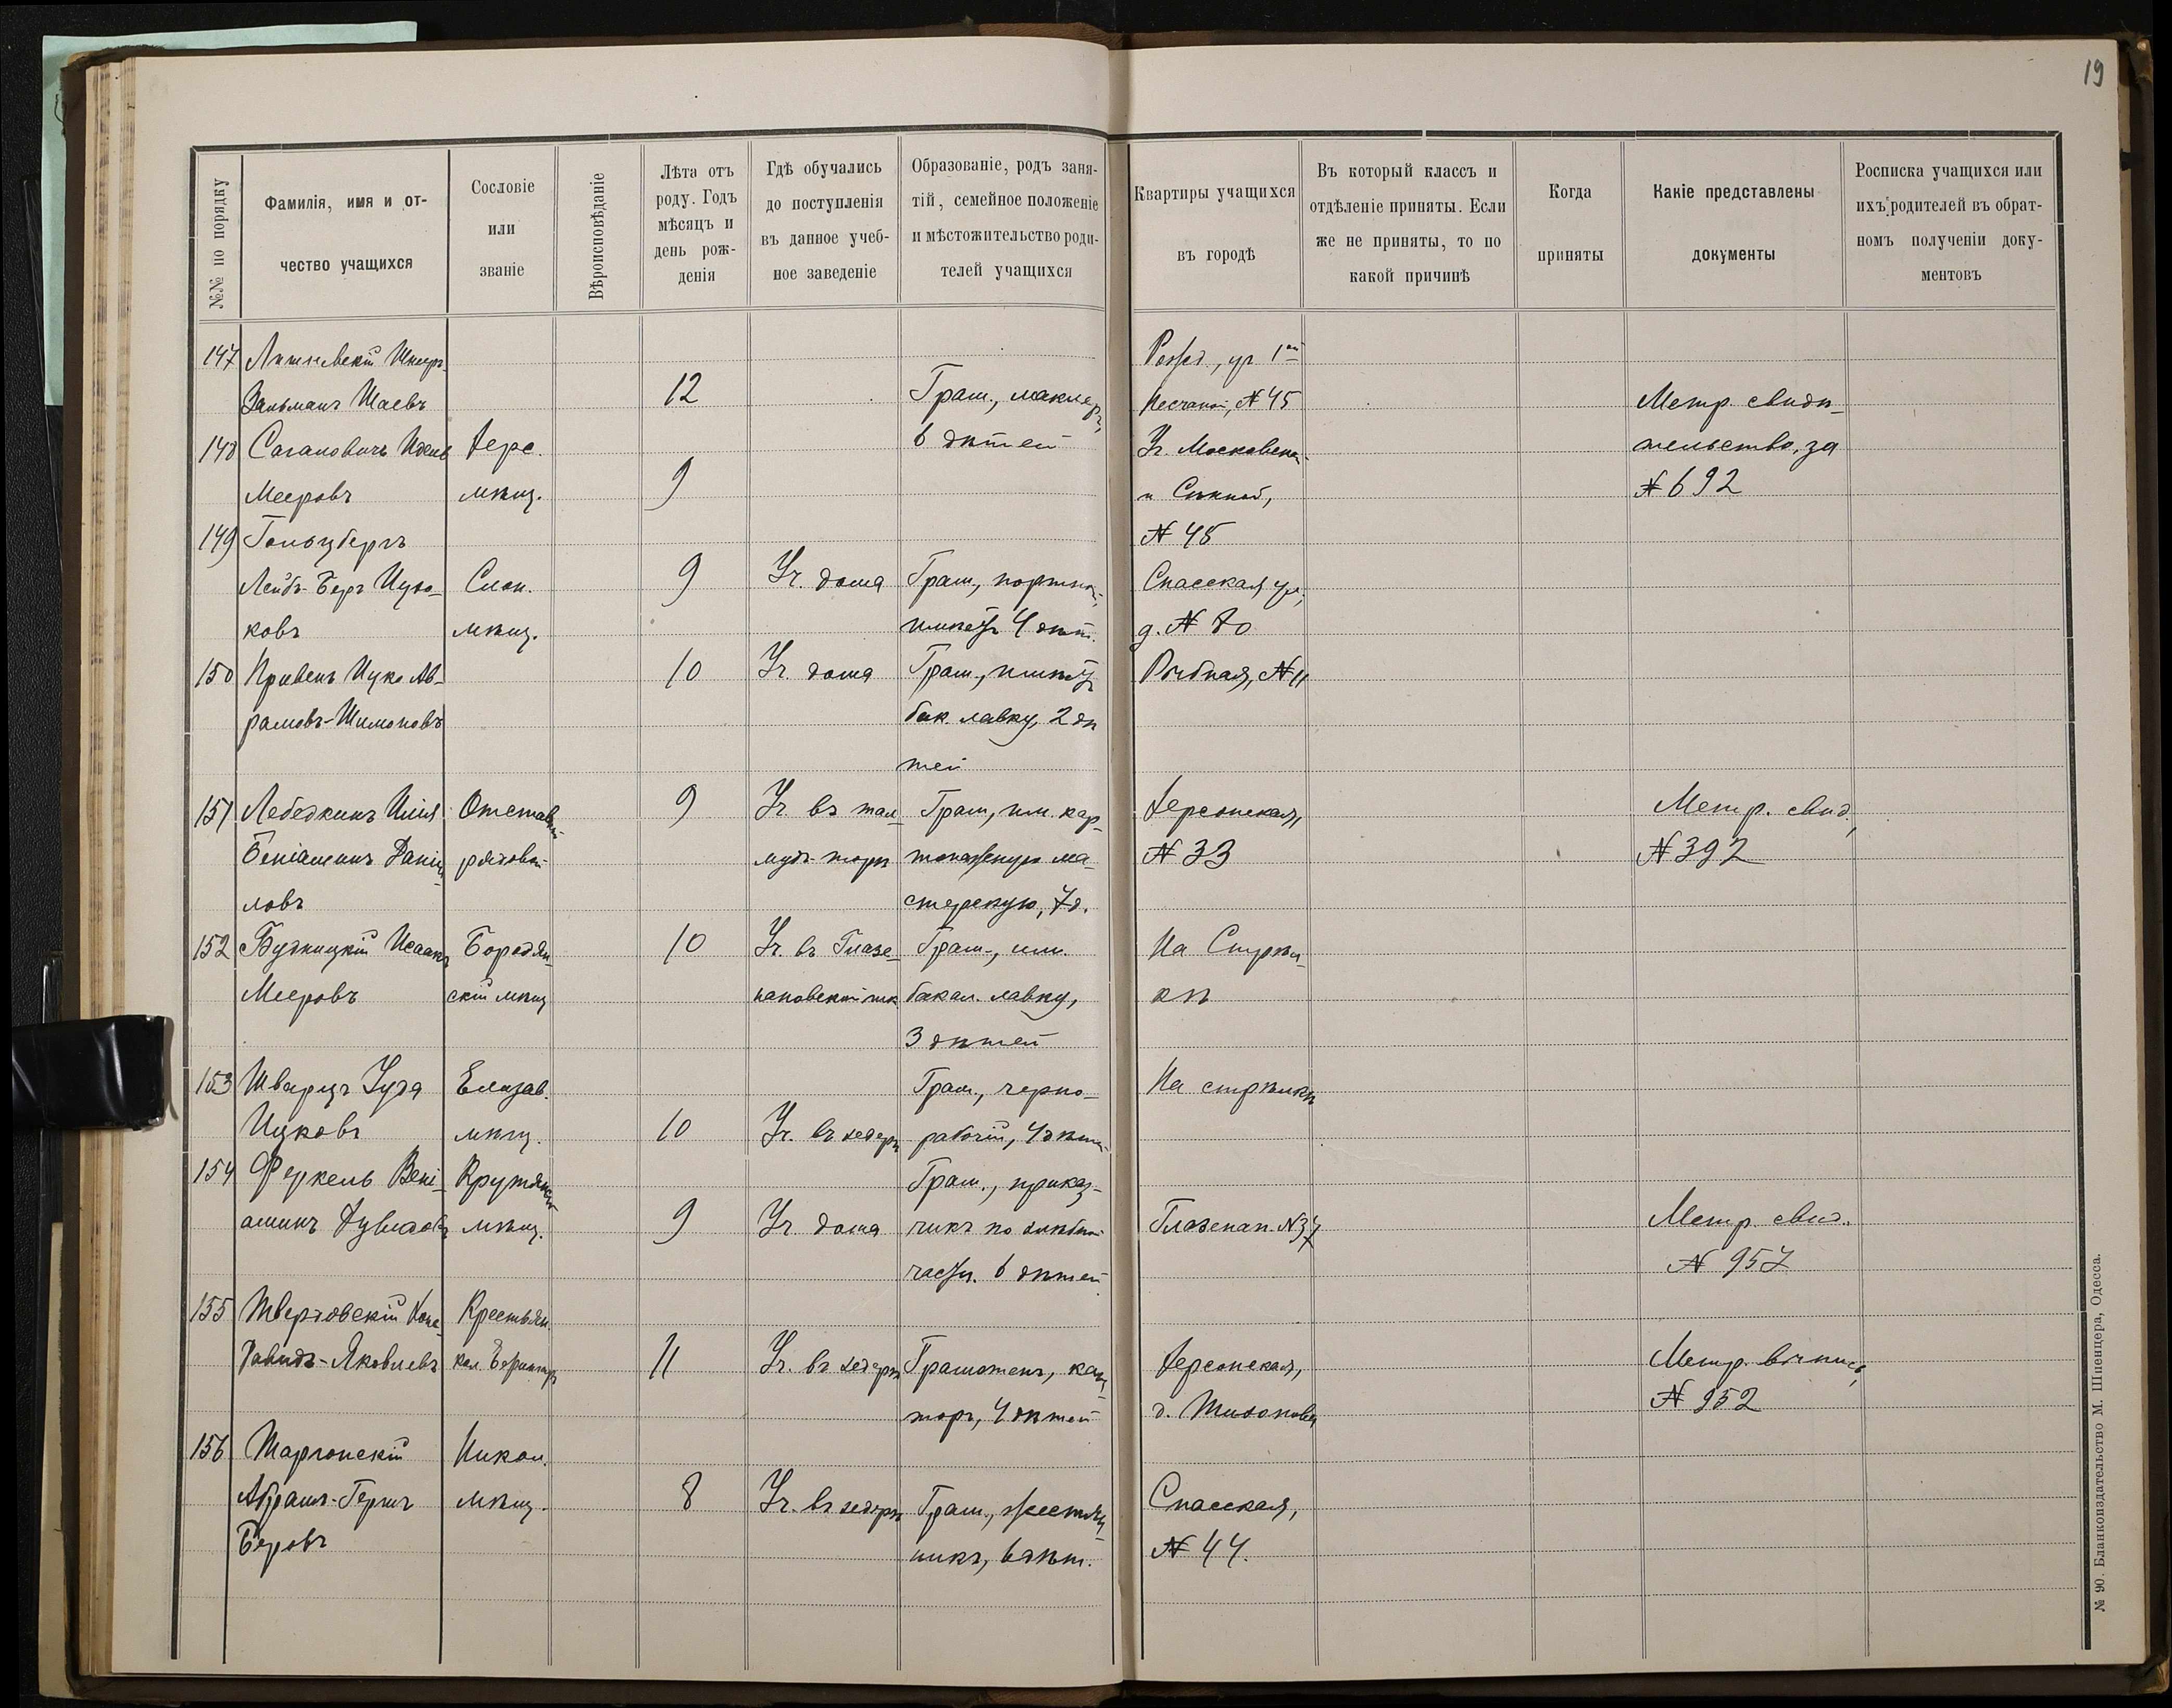 19
№№ по порядку
Фамилія, имя и от-
чество учащихся
Сословіе
или
званіе
Вѣроисповѣданіе
Лѣта отъ
роду. Годъ
мѣсяцъ и
день рож-
денія
Гдѣ обучались
до поступленія
въ данное учеб-
ное заведеніе
Образованіе, родъ заня-
тій, семейное положеніе
и мѣстожительство роди-
телей учащихся
Квартиры учащихся
въ городѣ
Въ который классъ и
отдѣленіе приняты. Если
же не приняты, то по
какой причинѣ
Когда
приняты
Какіе представлены
документы
Росписка учащихся или
ихъ родителей въ обрат-
номъ полученіи доку-
ментовъ
147
Зальманъ Шаевъ
12
Грам., маклеръ,
6 дѣтей
1ой
Песчаной, № 45
148 Сагановичъ
Мееровъ
Херс.
мѣщ.
9
Уг. Московской
и Сѣнной,
№ 45
Метр. свидѣ-
тельство, за
№ 692
149 Гольцбергъ
Лейбъ-Беръ Ицко-
ковъ
Слон.
мѣщ.
9
Уч. дома
Грам., портной,
имѣетъ 4 дѣт.
Спасская ул.,
д. № 80
150 Кривенъ Ицко Ав-
рамовъ-Шимоновъ
10
Уч. дома
Грам., имѣетъ
бак. лавку, 2 дѣ
тей
Рыбная, № 11
151 Лебедкинъ Илія
Беніаминъ Даніи-
ловъ
Отставной
рядовой
9
Уч. въ тал-
мудъ-торѣ
Грам., им. кар-
тонажную ма-
стерскую, 7 д.
Херсонская,
№ 33
Метр. свид.,
№ 392
152 Будницкій Исаакъ
Мееровъ
Бородян-
скій мѣщ
10
Уч. въ Глазе-
наповской шк.
Грам., им.
бакал. лавку,
3 дѣтей
На Стрѣл-
кѣ
153 Шварцъ Зуся
Ицковъ
Елизав.
мѣщ.
10
Уч. въ хедерѣ
Грам., черно-
рабочій, 4 дѣтей
На стрѣлкѣ
154 Феркель Вені-
аминъ
мѣщ.
9
Уч. дома
Грам., приказ-
чикъ по хлѣбной
части. 6 дѣтей
Глазенап. № 37
Метр. свид.
№ 957
155 Твердовскій
Давидъ-Яковлевъ
Крестьян.
11
Уч. въ хедерѣ
Грамотенъ, кан-
торъ, 4 дѣтей
Херсонская,
д. Тихонова
Метр. выпись,
№ 952
156 Таргонскій
Абрамъ-Гершъ
Беровъ
Никол.
мѣщ.
8
Уч. въ хедерѣ
Грам., жестян-
никъ, 6 дѣт.
Спасская,
№ 44.
№ 90. Бланкоиздательство М. Шпенцера, Одесса.